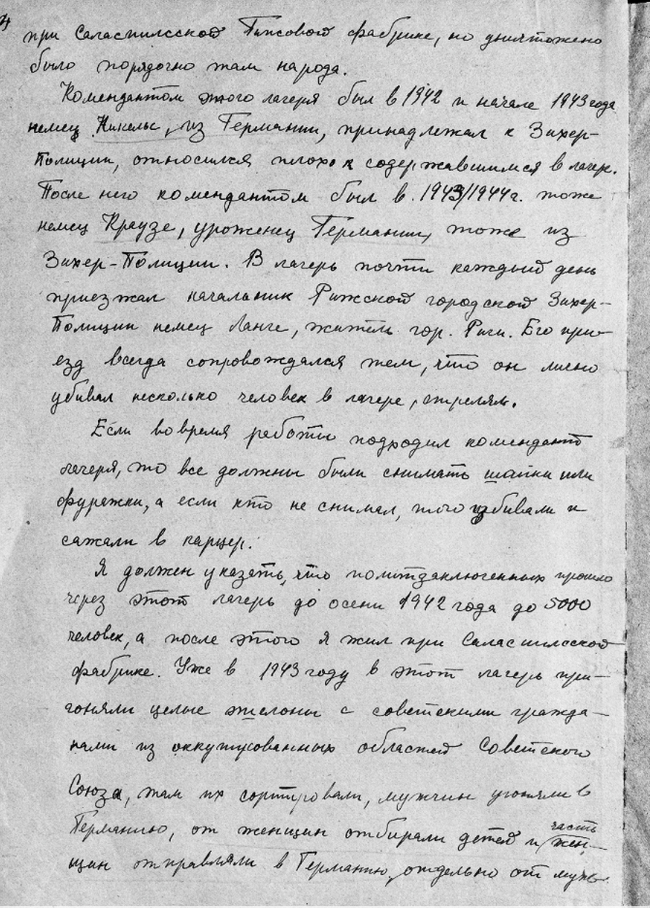 при Саласпилсской Гипсовой фабрике, но уничтожено
было порядочно там народа.
Комендантом этого лагеря был в 1942 и начале 1943 года
немец Никельс, из Германии, принадлежал к Зихер-
Полиции, относился плохо к содержавшимся в лагере.
После него комендантом был в 1943/1944 г. тоже
немец Краузе, уроженец Германии, тоже из
Зихер-Полиции. В лагерь почти каждый день
приезжал начальник Рижской городской Зихер-
Полиции немец Ланге, житель гор. Риги. Его при-
езд всегда сопровождался тем, что он лично
убивал несколько человек в лагере, стрелял.
Если во время работы подходил комендант
лагеря, то все должны были снимать шапки или
фуражки, а если кто не снимал, того избивали и
сажали в карцер.
Я должен указать, что политзаключенных прошло
через этот лагерь до осени 1942 года до 5000
человек, а после этого я жил при Саласпилсской
фабрике. Уже в 1943 году в этот лагерь при-
гоняли целые эшелоны с советскими гражда-
нами из оккупированных областей Советского
Союза, там их сортировали, мужчин угоняли в
Германию, от женщин отбирали детей и часть жен-
щин отправляли в Германию, отдельно от муж-